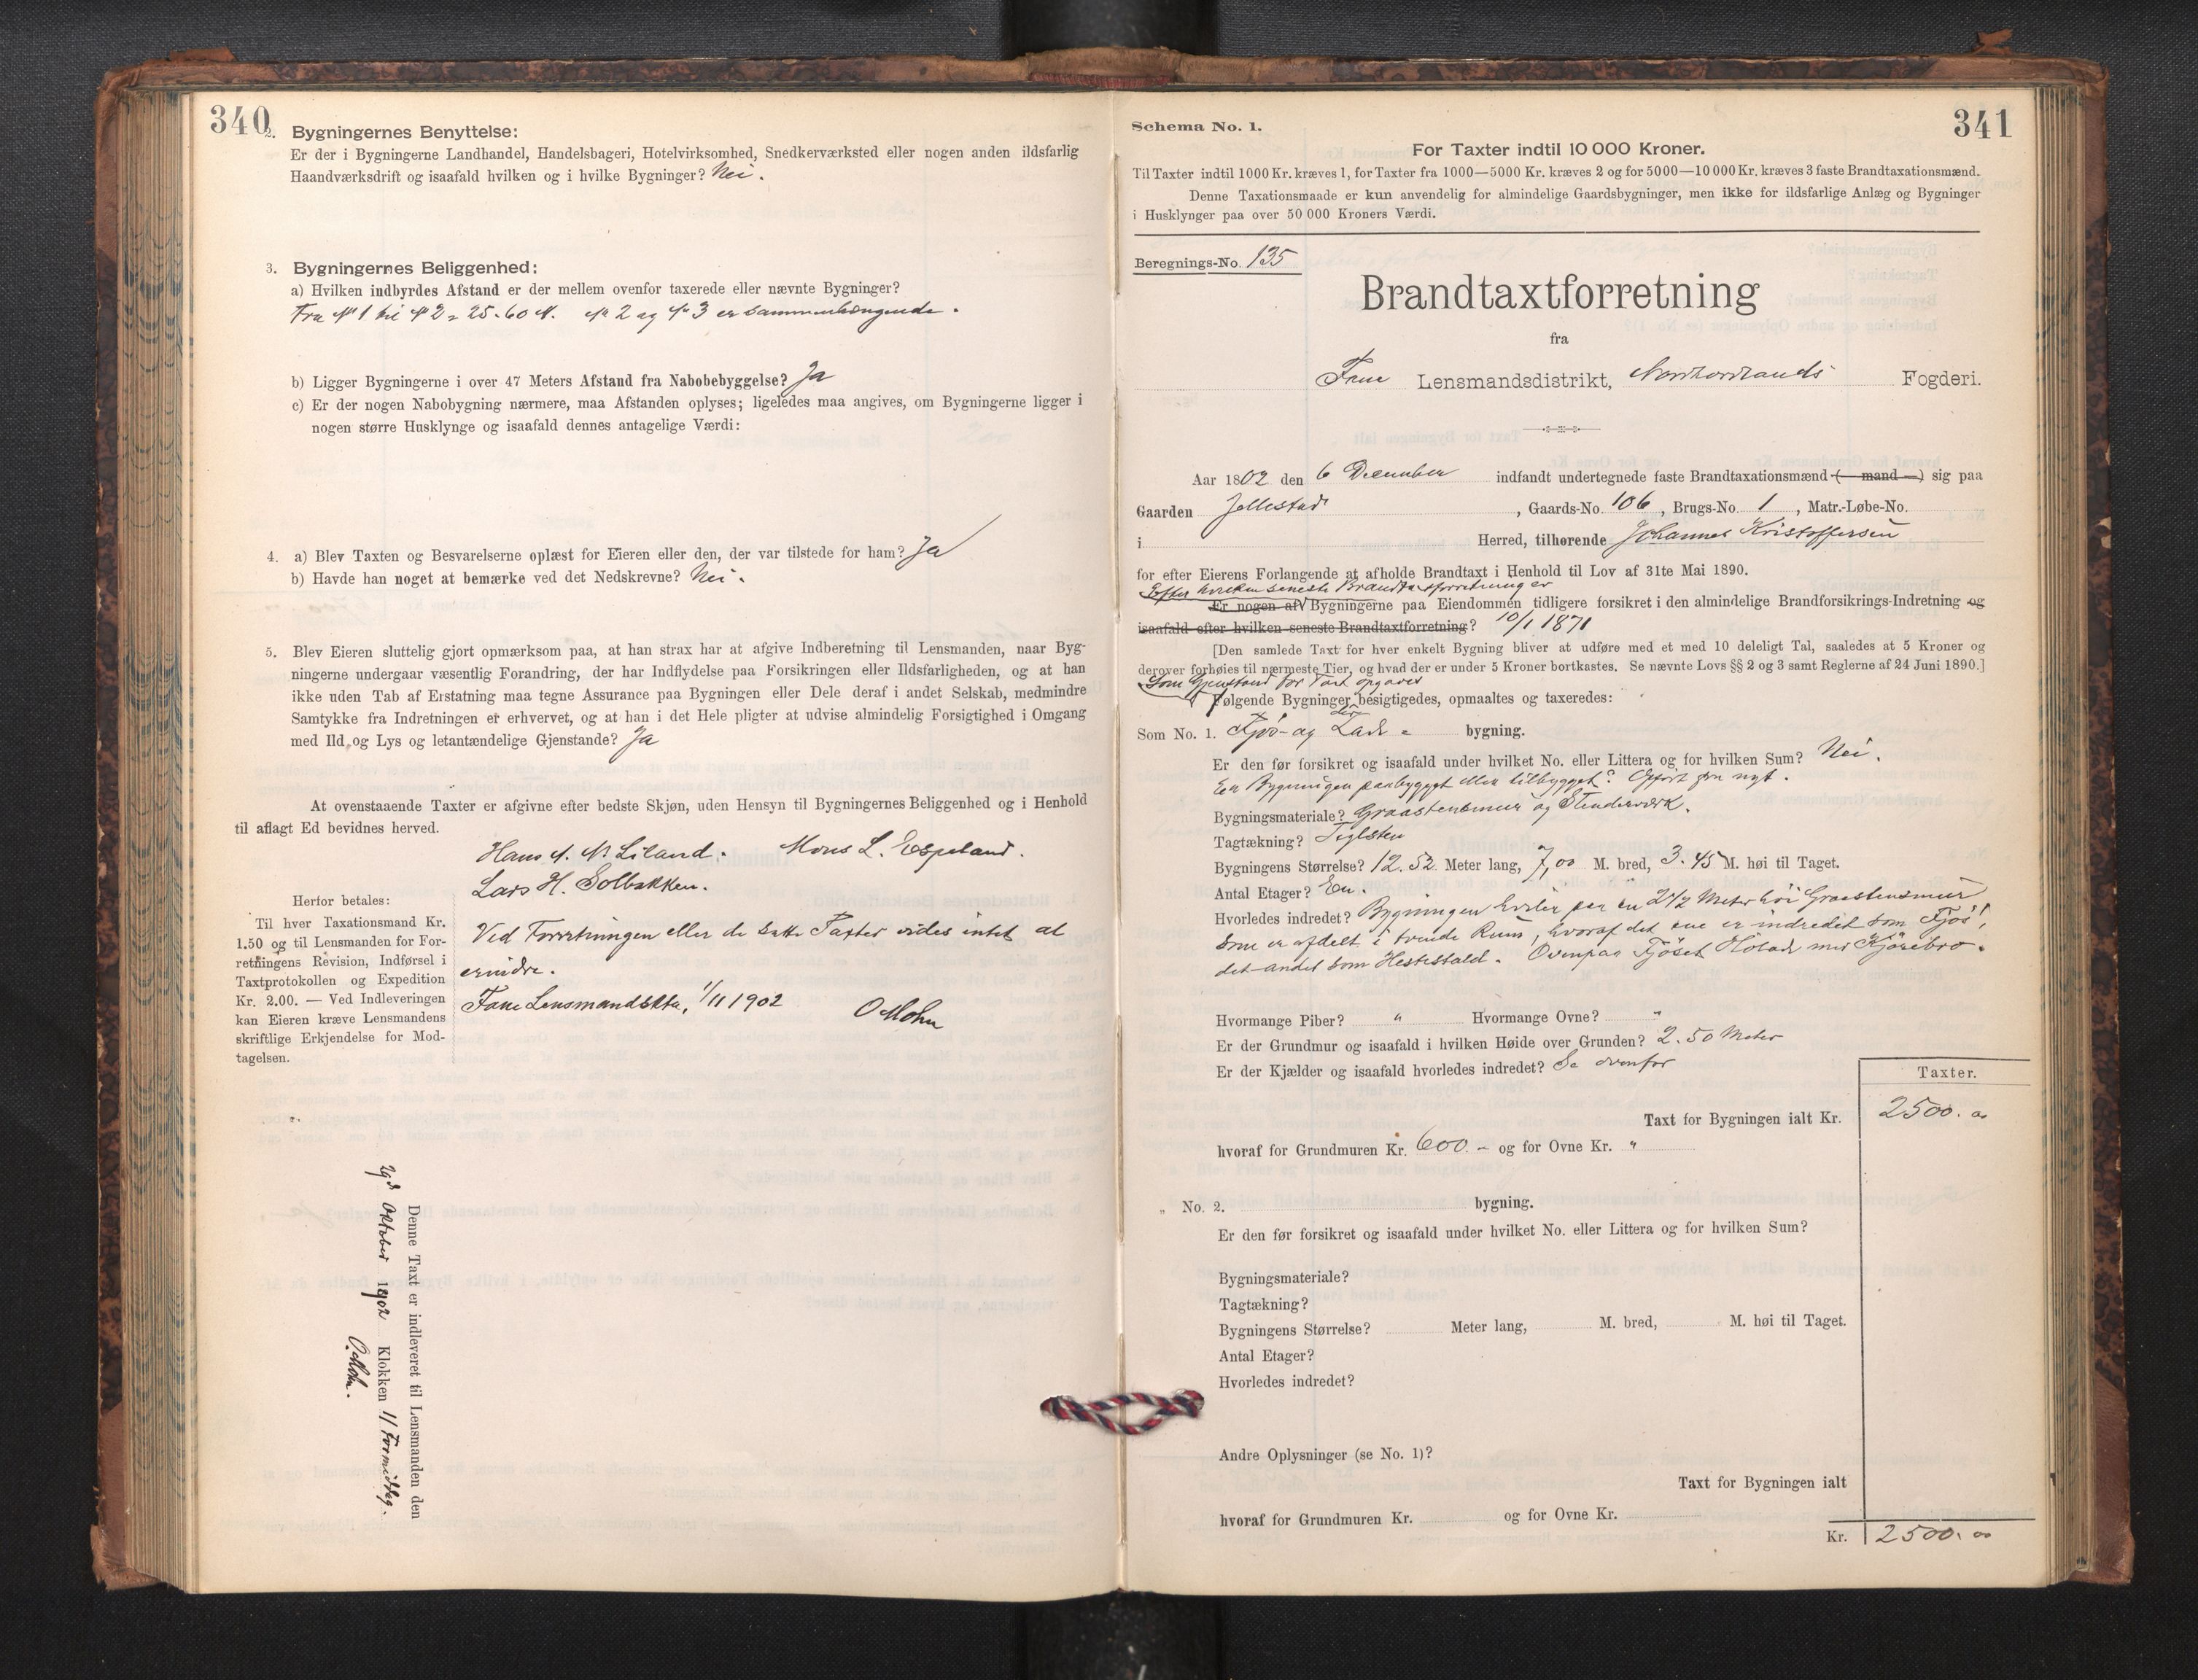 340
2. Bygningernes Benyttelse:
Er der i Bygningerne Landhandel, Handelsbageri, Hotelvirksomhed, Snedkerværksted eller nogen anden ildsfarlig
Haandværksdrift og isaafald hvilken og i hvilke Bygninger? Nei.
3. Bygningernes Beliggenhed:
a) Hvilken indbyrdes Afstand er der mellem ovenfor taxerede eller nævnte Bygninger?
Fra No 1 til No 2 = 25.60 M. No 2 og No 3 er sammenhængende.
b) Ligger Bygningerne i over 47 Meters Afstand fra Nabobebyggelse? Ja
c) Er der nogen Nabobygning nærmere, maa Afstanden oplyses; ligeledes maa angives, om Bygningerne ligger i
nogen større Husklynge og isaafald dennes antagelige Værdi:
4. a) Blev Taxten og Besvarelserne oplæst for Eieren eller den, der var tilstede for ham? Ja
b) Havde han noget at bemærke ved det Nedskrevne? Nei.
5. Blev Eieren sluttelig gjort opmærksom paa, at han strax har at afgive Indberetning til Lensmanden, naar Byg-
ningerne undergaar væsentlig Forandring, der har Indflydelse paa Forsikringen eller Ildsfarligheden, og at han
ikke uden Tab af Erstatning maa tegne Assurance paa Bygningen eller Dele deraf i andet Selskab, medmindre
Samtykke fra Indretningen er erhvervet, og at han i det Hele pligter at udvise almindelig Forsigtighed i Omgang
med Ild og Lys og letantændelige Gjenstande? Ja
At ovenstaaende Taxter er afgivne efter bedste Skjøn, uden Hensyn til Bygningernes Beliggenhed og i Henhold
til aflagt Ed bevidnes herved.
Hans A. N. Liland. Mons L. Espeland.
Lars H. Solbakken.
Herfor betales:
Til hver Taxationsmand Kr.
1.50 og til Lensmanden for For-
retningens Revision, Indførsel i
Taxtprotokollen og Expedition
Kr. 2.00. — Ved Indleveringen
kan Eieren kræve Lensmandens
skriftlige Erkjendelse for Mod-
tagelsen.
Ved Forretningen eller de satte Taxter vides intet at
erindre.
Fane Lensmandsktr, 1/11 1902 O Mohn
Denne Taxt er indleveret til Lensmanden den
29d Oktober 1902 Klokken 11 Formiddag.
O. Mohn.
341
Schema No. 1.
For Taxter indtil 10 000 Kroner.
Til Taxter indtil 1000 Kr. kræves 1, for Taxter fra 1000—5000 Kr. kræves 2 og for 5000—10 000 Kr. kræves 3 faste Brandtaxationsmænd.
Denne Taxationsmaade er kun anvendelig for almindelige Gaardsbygninger, men ikke for ildsfarlige Anlæg og Bygninger
i Husklynger paa over 50 000 Kroners Værdi.
Beregnings-No. 135
Brandtaxtforretning
fra
Fane Lensmandsdistrikt, Nordhordlands Fogderi.
Aar 1802 den 6 December indfandt undertegnede faste Brandtaxationsmænd (— mand —) sig paa
Gaarden Jellestad, Gaards-No. 106, Brugs-No. 1, Matr.-Løbe-No.
i Herred, tilhørende Johannes Kristoffersen
for efter Eierens Forlangende at afholde Brandtaxt i Henhold til Lov af 31te Mai 1890.
Efter hvilken seneste Brandtaxtforretning er
Er nogen af Bygningerne paa Eiendommen tidligere forsikret i den almindelige Brandforsikrings-Indretning og
isaafald efter hvilken seneste Brandtaxtforretning? 10/1 1871
[Den samlede Taxt for hver enkelt Bygning bliver at udføre med et med 10 deleligt Tal, saaledes at 5 Kroner og
derover forhøies til nærmeste Tier, og hvad der er under 5 Kroner bortkastes. Se nævnte Lovs §§ 2 og 3 samt Reglerne af 24 Juni 1890.]
Som Gjenstand for Taxt opgaves
Følgende Bygninger der besigtigedes, opmaaltes og taxeredes:
Som No. 1. Fjøs- og Lade- bygning.
Er den før forsikret og isaafald under hvilket No. eller Littera og for hvilken Sum? Nei.
Er Bygningen paabygget eller tilbygget? Opført fra nyt.
Bygningsmateriale? Graastensmur og Stenderværk.
Tagtækning? Teglsten
Bygningens Størrelse? 12.52 Meter lang, 7,00 M. bred, 3.45 M. høi til Taget.
Antal Etager? En.
Hvorledes indredet? Bygningen hviler paa en 2 1/2 Meter høi Graastensmur
som er afdelt i tvende Rum, hvoraf det ene er indredet som Fjøs,
det andet som Hestestald. Ovenpaa Fjøset Hølade med Kjørebro.
Hvormange Piber? " Hvormange Ovne? "
Er der Grundmur og isaafald i hvilken Høide over Grunden? 2.50 Meter
Er der Kjælder og isaafald hvorledes indredet? Se ovenfor
Taxter.
Taxt for Bygningen ialt Kr. 2500.00
hvoraf for Grundmuren Kr. 600.- og for Ovne Kr. "
„ No. 2. bygning.
Er den før forsikret og isaafald under hvilket No. eller Littera og for hvilken Sum?
Bygningsmateriale?
Tagtækning?
Bygningens Størrelse? Meter lang, M. bred, M. høi til Taget.
Antal Etager?
Hvorledes indredet?
Andre Oplysninger (se No. 1)?
Taxt for Bygningen ialt
hvoraf for Grundmuren Kr. og for Ovne Kr.
Kr. 2500.00